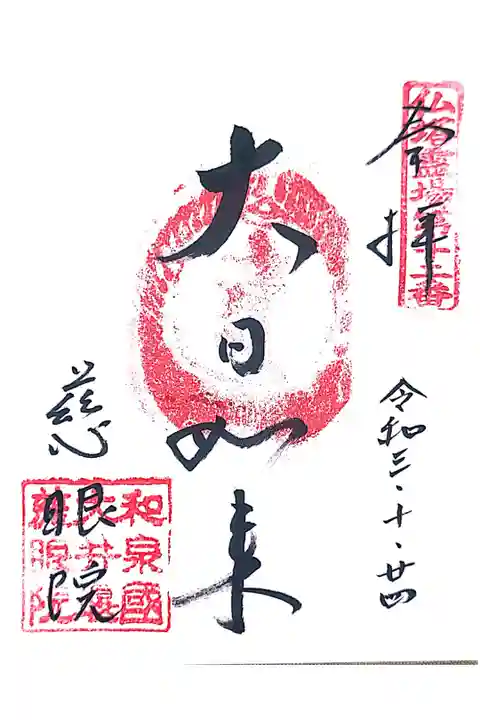 奉拝
仏塔霊場第十二番
令和三・十・廿四
大日如来
慈眼院
和泉國
慈眼院